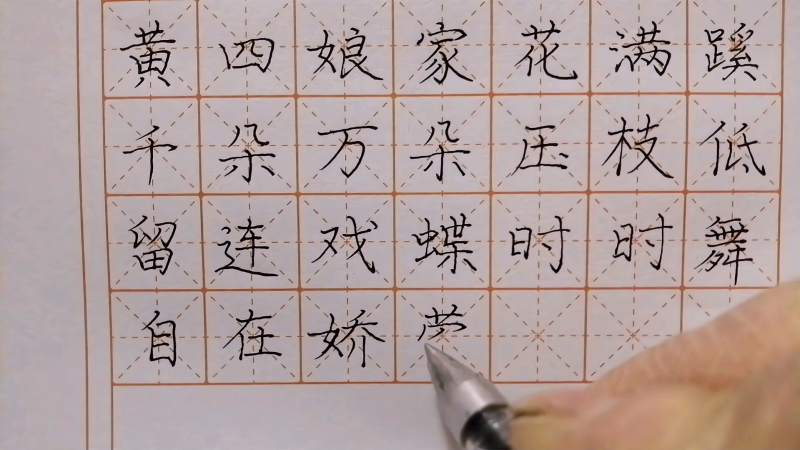 黄四娘家花满蹊
千朵万朵压枝低
留连戏蝶时时舞
自在娇